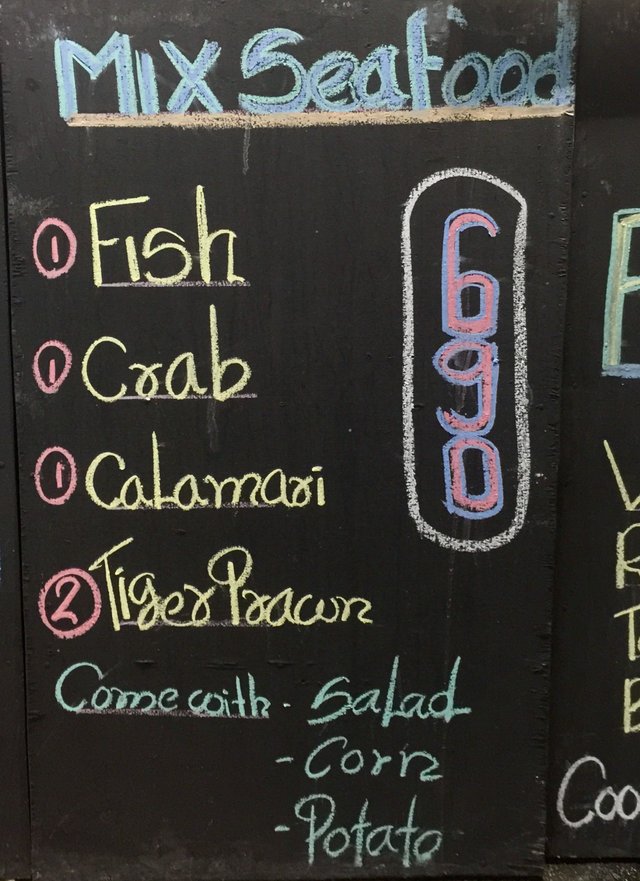 Mix Seafood
① Fish
① Crab
① Calamari
② Tiger Prawn
690
Come with - Salad
- Corn
- Potato
Coo